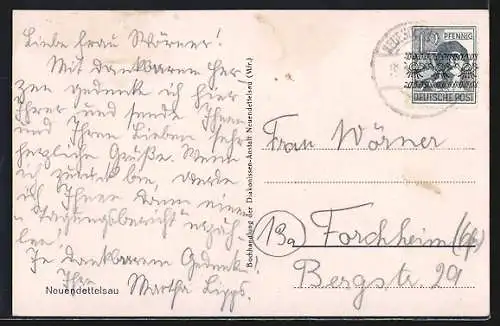 Liebe Frau Wörner!
Mit dankbarem Her-
zen gedenke ich hier
Ihrer und sende Ihnen
und Ihren Lieben sehr
herzliche Grüße. Wenn
ich zurück bin, werde
ich Ihnen dann einen
"Tagungsbericht" erzäh-
len.
In dankbarem Gedenken!
Ihre Martha Lipps.
Neuendettelsau
Buchhandlung der Diakonissen-Anstalt Neuendettelsau (Mfr.)
PFENNIG
DEUTSCHE POST
Frau Wörner
13a
Forchheim
Bergstr. 29